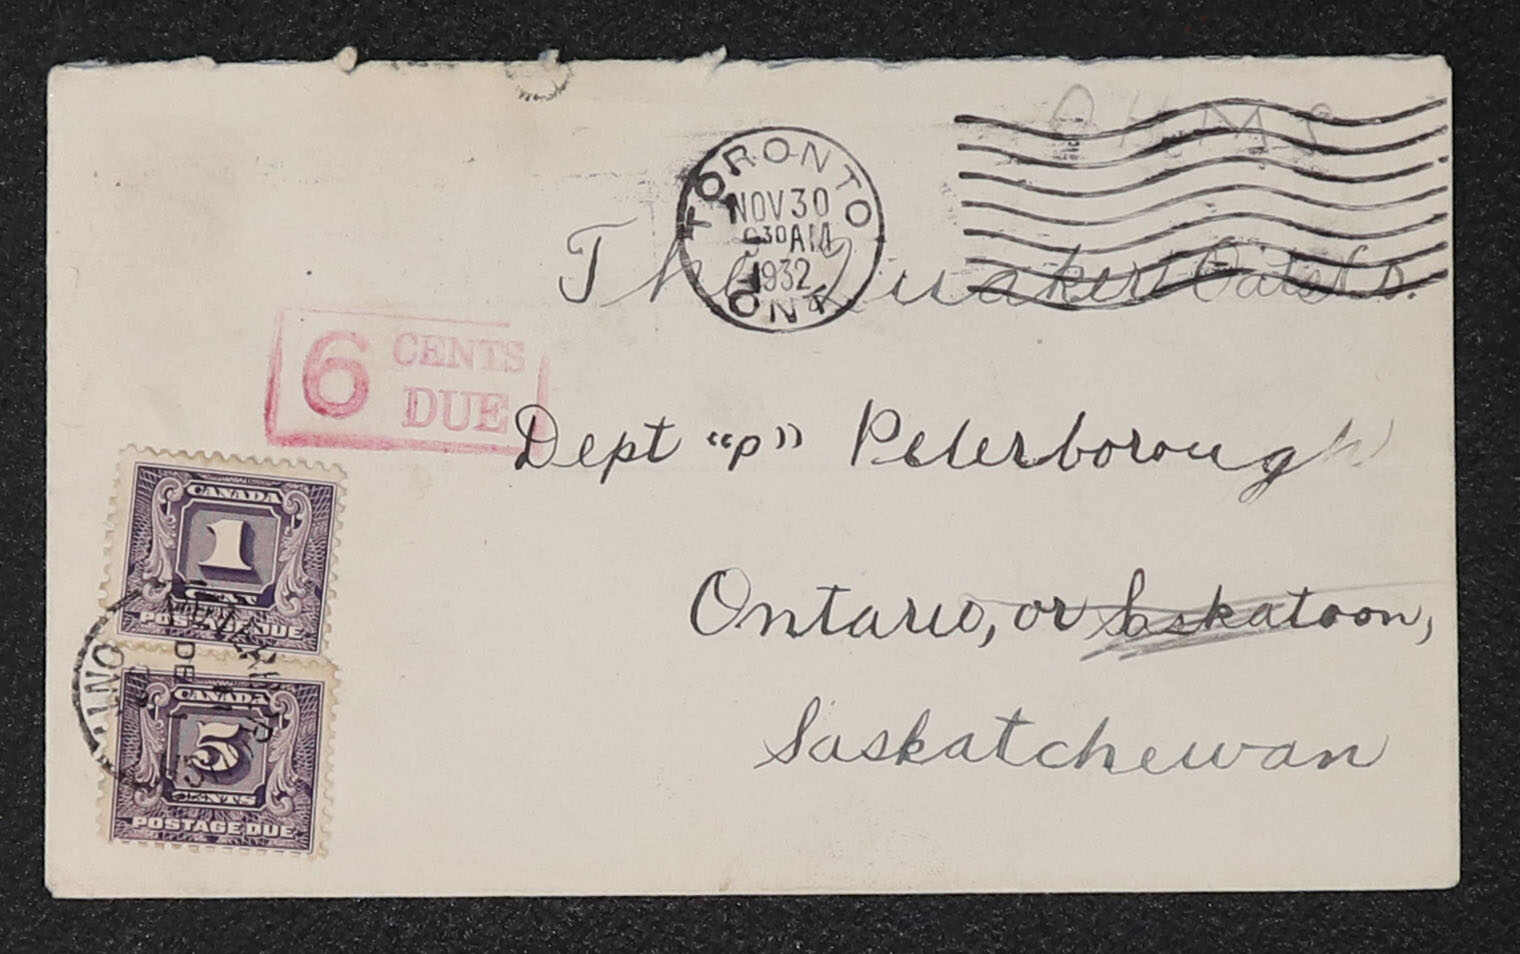 O.H.M.S
TORONTO
NOV 30
9 30 AM
1932
ONT
The Quaker Oats Co.
6 CENTS
DUE
Dept "P" Peterborough
Ontario, or Saskatoon,
Saskatchewan
CANADA
1
CENT
POSTAGE DUE
CANADA
5
CENTS
POSTAGE DUE
ONT
DE